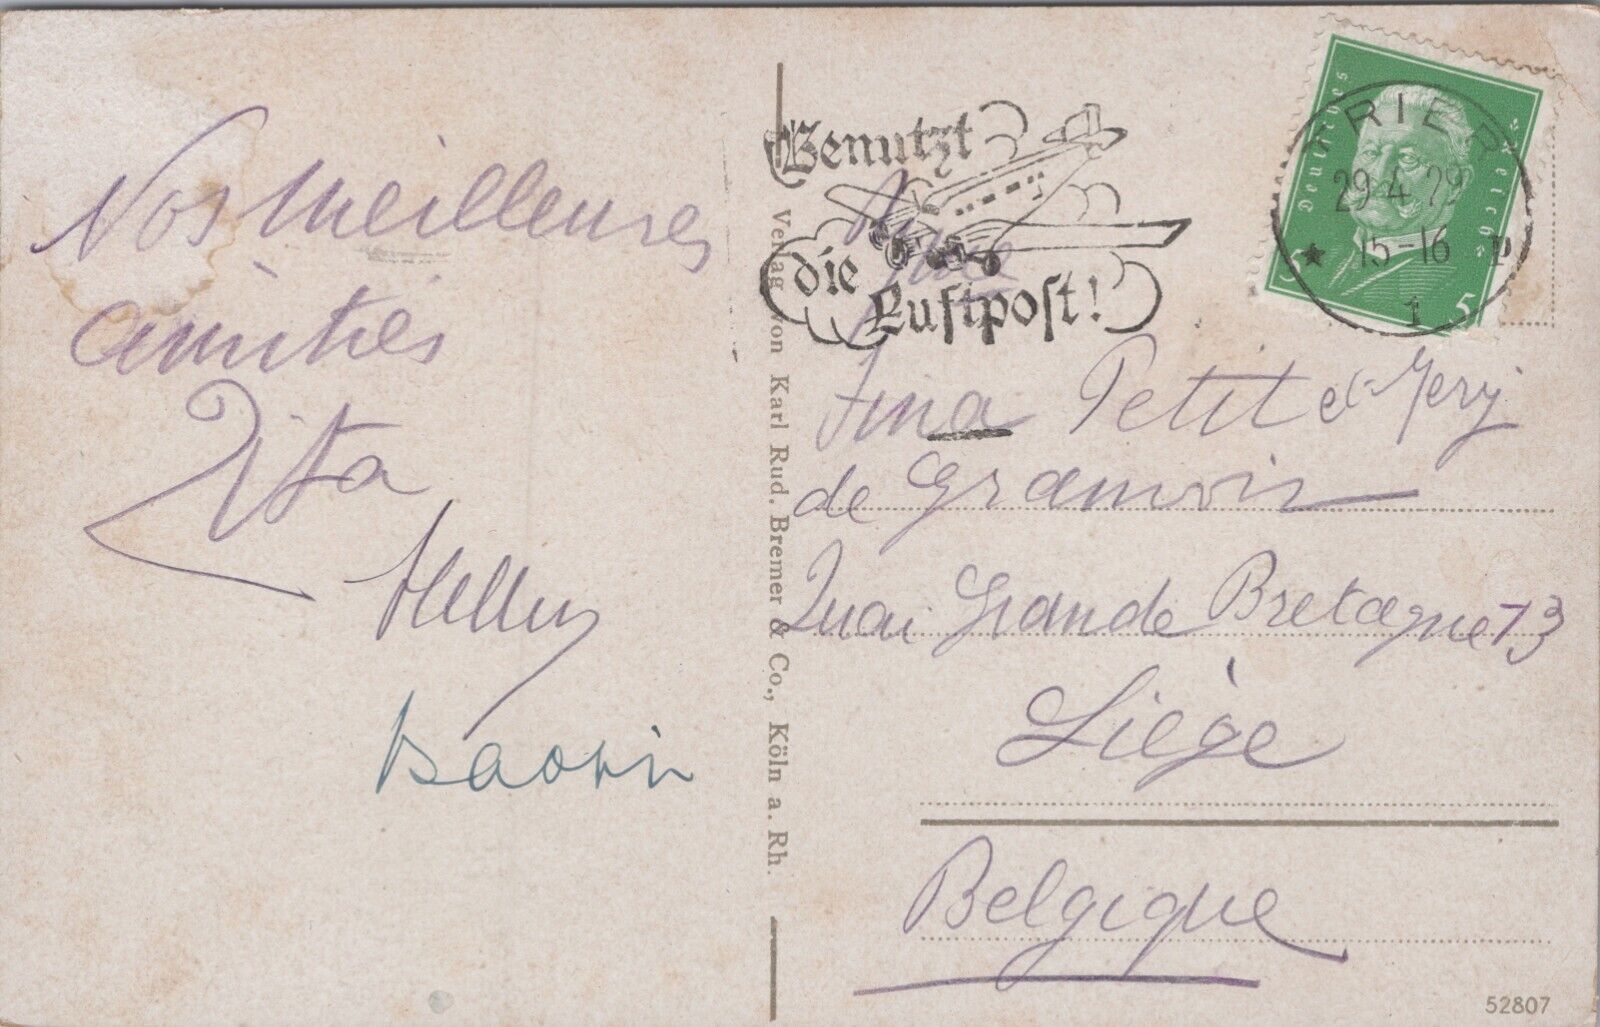 Nos meilleures
amitiés
Zita
Benutzt
die
Luftpost!
Deutsches Reich
5 5
TRIER
29.4.29
★ 15-16 P
1
Petit et
de
Quai Grande Bretagne 73
Liège
Belgique
Verlag von Karl Rud. Bremer & Co., Köln a. Rh.
52807